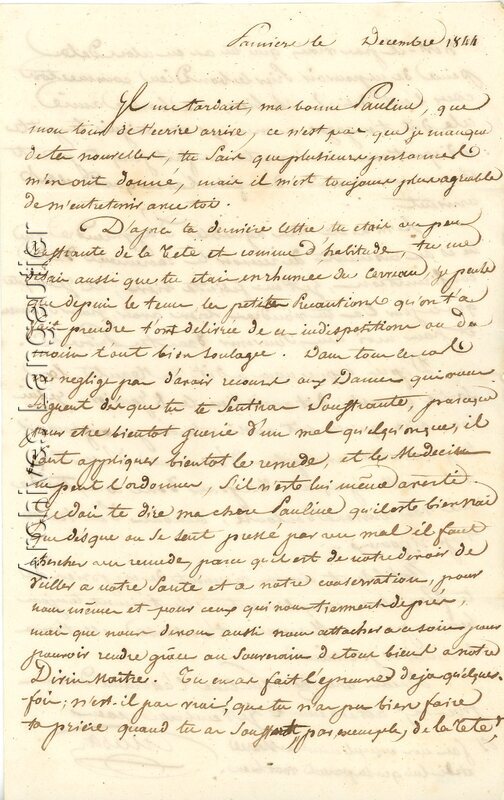 Pamiers le Decembre 1844
Il me tardait, ma bonne Pauline, que
mon tour de t'ecrire arrive, ce n'est pas que je manque
de tes nouvelles, tu sais que plusieurs personnes
m'en ont donné, mais il m'est toujours plus agreable
de m'entretenir avec toi.
D'après ta dernière lettre tu etais un peu
souffrante de la Tete et comme d'habitude, tu me
disais aussi que tu etais enrhumée de cerveau, je pense
que depuis le tems les petites precautions qu'on t'a
fait prendre t'ont delivrée de ces indispositions ou du
moins t'ont bien soulagée. Dans tous les cas
ne neglige pas d'avoir recours aux Dames qui vous
soignent des que tu te sentiras souffrante, parceque
pour etre bientot guerie d'un mal quelqu'onque, il
faut appliquer bientot le remede, et le Medecin
ne peut l'ordonner, s'il n'est lui même averti
Je dois te dire ma chere Pauline qu'il est bien vrai
que desque on se sent pressé par un mal il faut
chercher un remede, parce qu'il est de notre devoir de
veiller a notre Santé et a notre conservation, pour
nous mêmes et pour ceux qui nous tiennent de près,
mais que nous devons aussi nous attacher a ce soin pour
pouvoir rendre grâce au Souverain de tous biens a notre
Divin Maitre. Tu en as fait l'epreuve deja quelques
fois; n'est-il pas vrai, que tu n'as pu bien faire
ta prière quand tu as souffert, par exemple, de la Tete,
Archives Lancedier